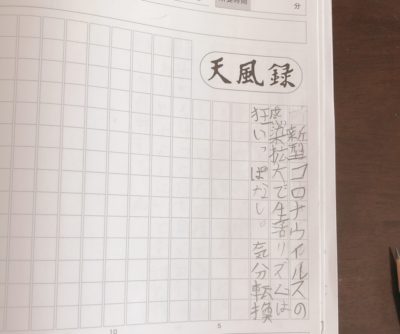 分
天風録
新型コロナウイルスの
感染拡大で生活リズムは
狂いっぱなし。気分転換
5
10